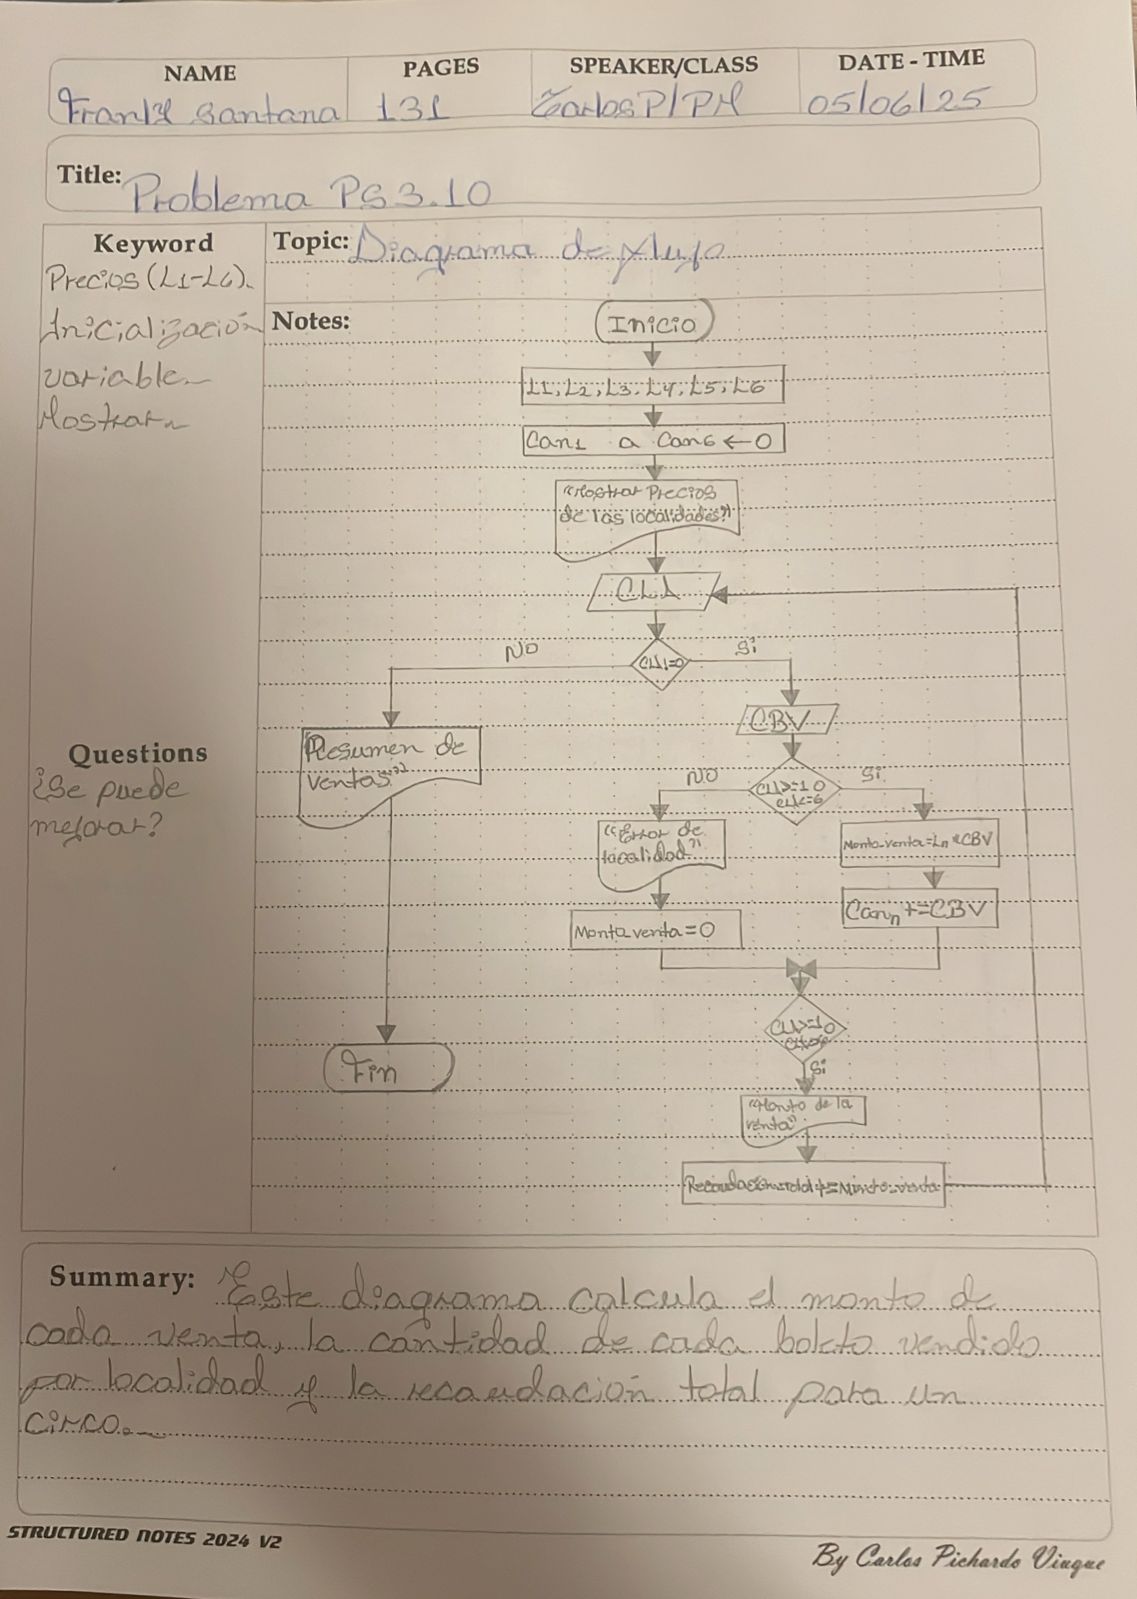 NAME PAGES SPEAKER/CLASS DATE - TIME
Franly Santana 131 Carlos P/PM 05/06/25
Title: Problema PS 3.10
Keyword
Precios (L1-L6).
Inicialización
variable.
Mostrar
Topic: Diagrama de flujo
Notes:
Inicio
L1, L2, L3, L4, L5, L6
Can1 a Can6 ← 0
"Mostrar Precios
de las localidades"
CLA
No
Si
CBV
"Resumen de
ventas"
No
Si
"Error de
localidad"
Monto_venta=Ln*CBV
Monto_venta=0
Cann +=CBV
Fin
Si
"Monto de la
venta"
Questions
¿Se puede
mejorar?
Summary: Este diagrama calcula el monto de
cada venta, la cantidad de cada boleto vendido
por localidad y la recaudación total para un
circo.
STRUCTURED NOTES 2024 V2
By Carlos Pichardo Viuque